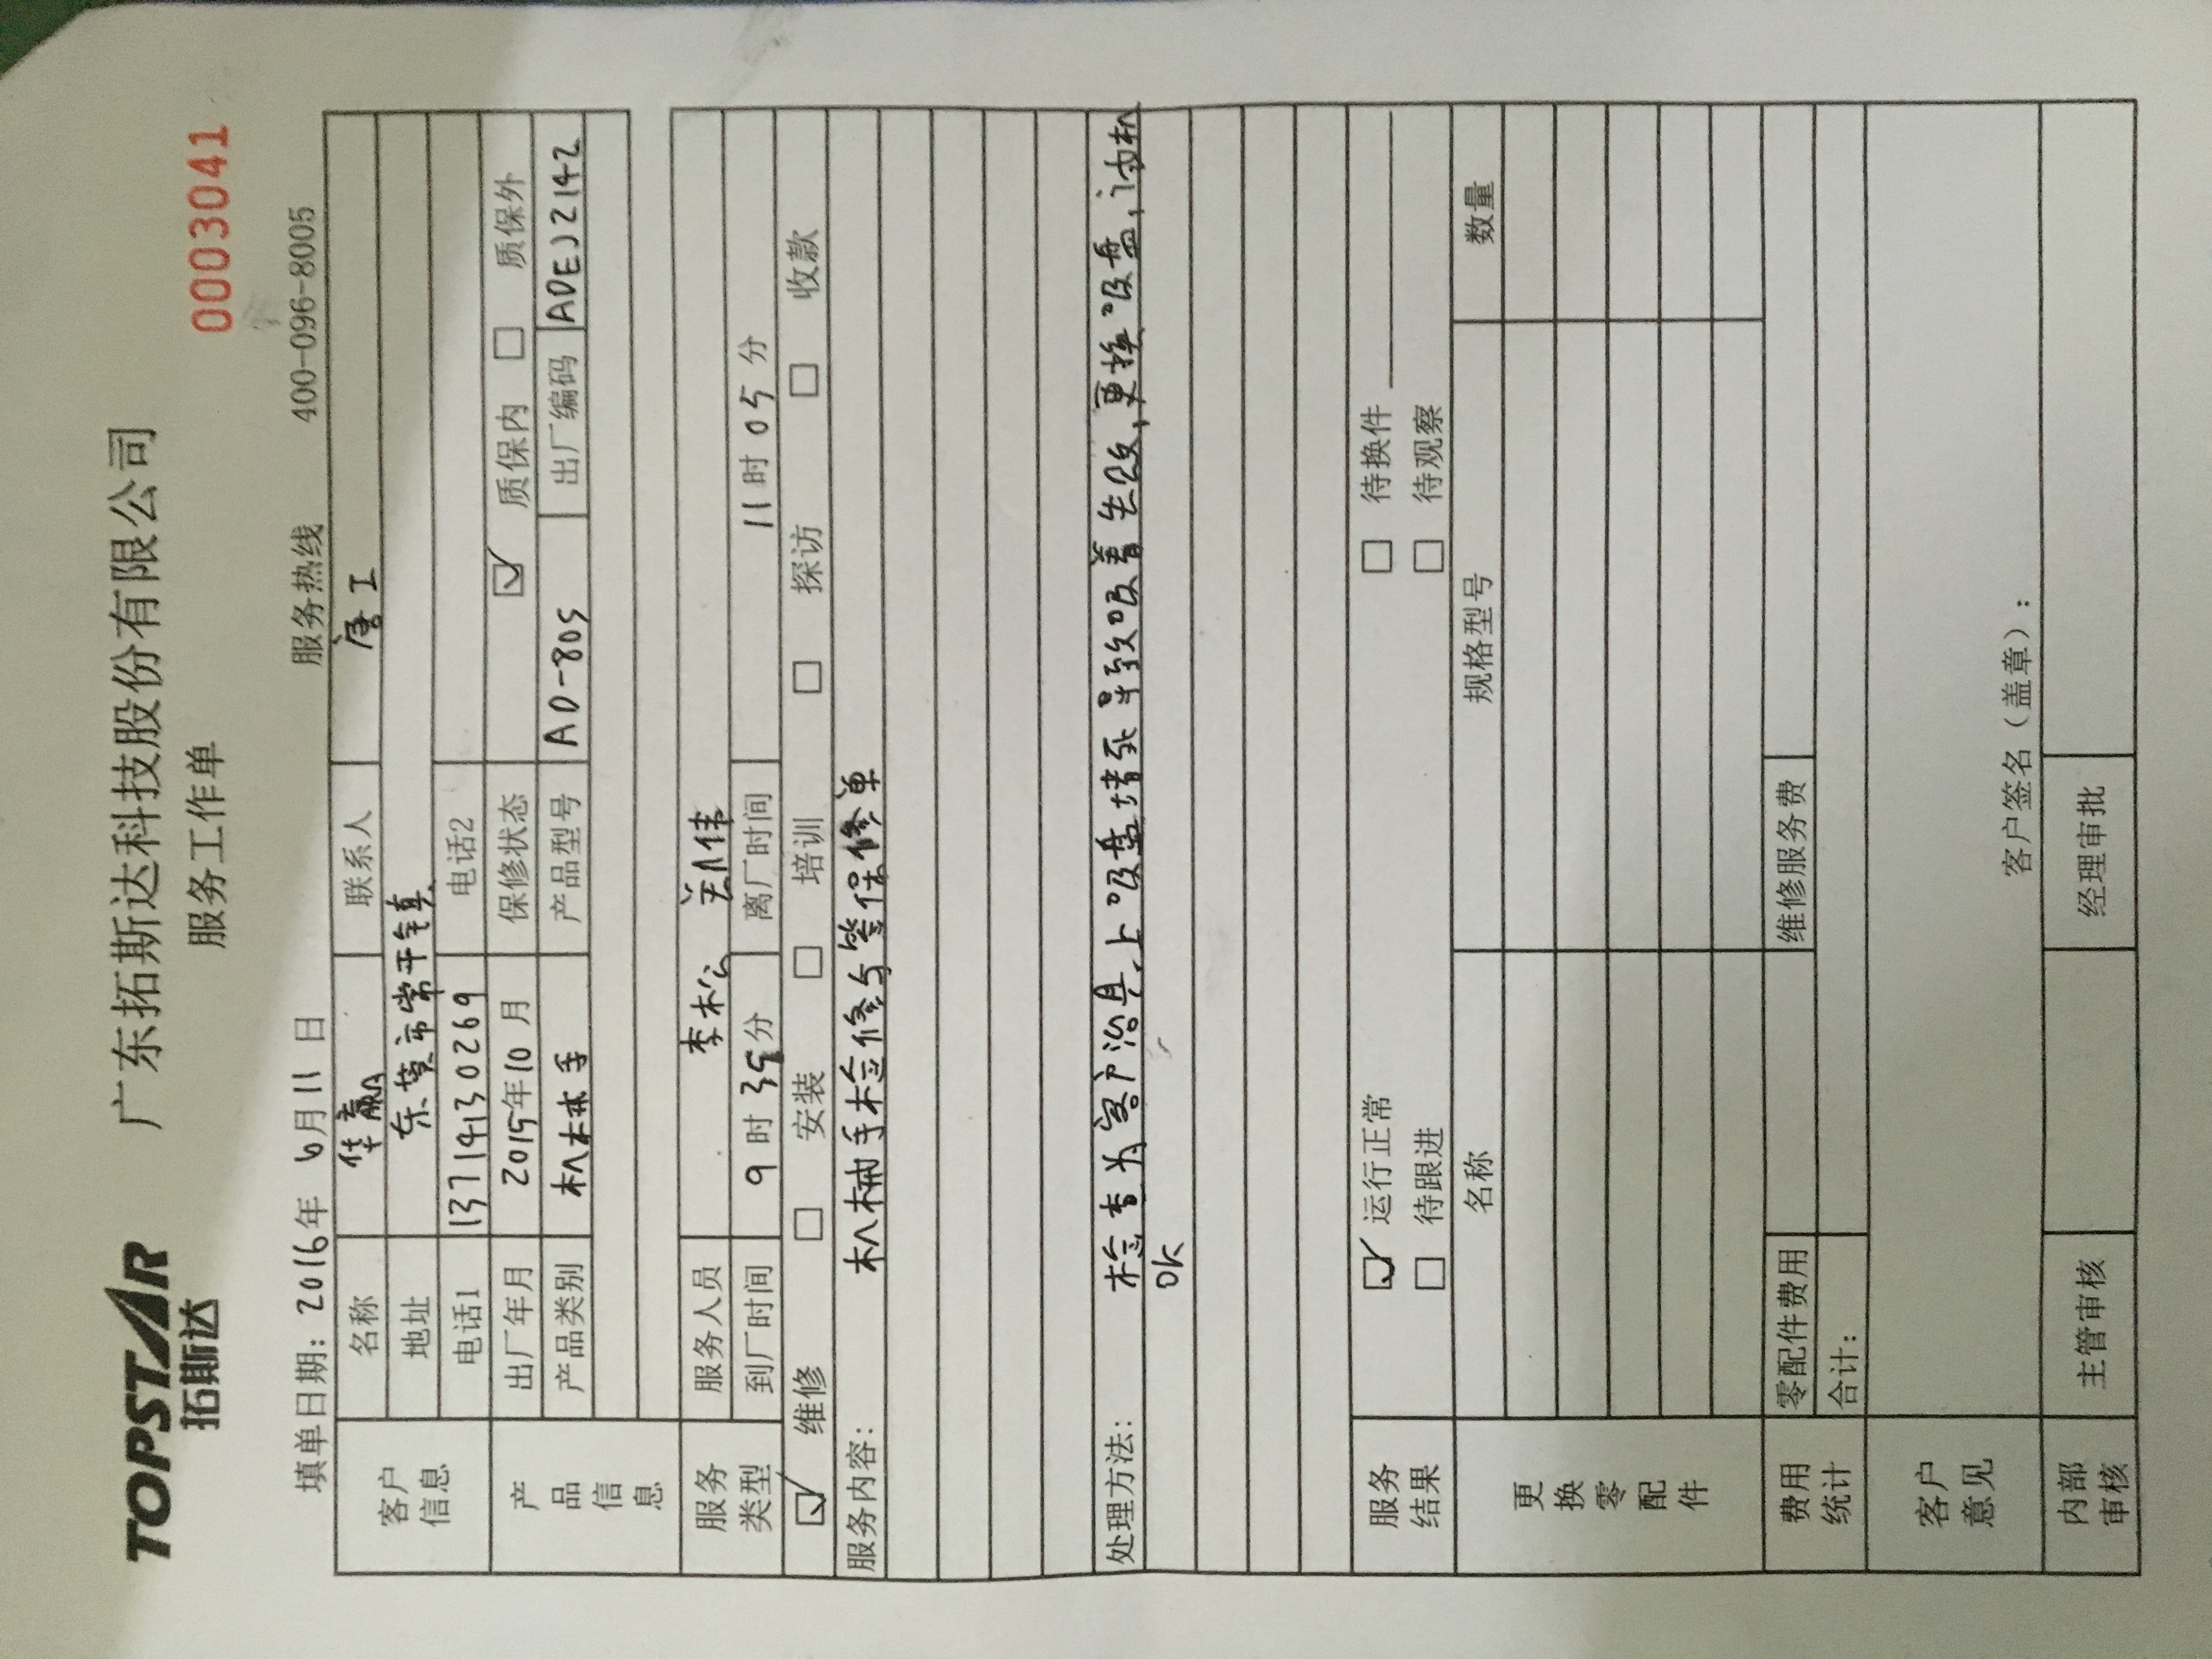 TOPSTAR 广东拓斯达科技股份有限公司
拓斯达 服务工作单 0003041
填单日期：2016年 6月 11 日 服务热线 400-096-8005
客户信息 名称 华赢 联系人 唐工
地址 东莞市常平镇
电话1 13714130269 电话2
产品信息 出厂年月 2015年10月 保修状态 ☑ 质保内 □ 质保外
产品类别 机械手 产品型号 AD-80S 出厂编码 ADEJ2142
服务类型 服务人员 李松
到厂时间 9 时 35 分 离厂时间 11 时 05 分
☑ 维修 □ 安装 □ 培训 □ 探访 □ 收款
服务内容： 机械手检修与签保修单
处理方法： 检查为客户治具上吸盘堵死导致吸着失败,更换吸盘,试机
OK
服务结果 ☑ 运行正常 □ 待换件
□ 待跟进 □ 待观察
更换零配件 名称 规格型号 数量
费用统计 零配件费用 维修服务费
合计：
客户意见
客户签名（盖章）：
内部审核 主管审核 经理审批